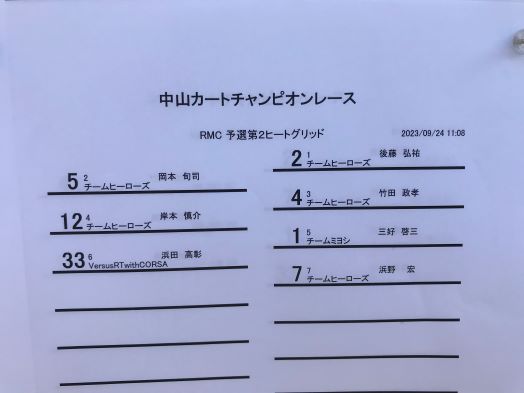 中山カートチャンピオンレース
RMC 予選第2ヒートグリッド
2023/09/24 11:08
2 1 後藤 弘祐
チームヒーローズ
5 2 岡本 旬司
チームヒーローズ
4 3 竹田 政孝
チームヒーローズ
12 4 岸本 慎介
チームヒーローズ
1 5 三好 啓三
チームミヨシ
33 6 浜田 高彰
VersusRTwithCORSA
7 7 浜野 宏
チームヒーローズ